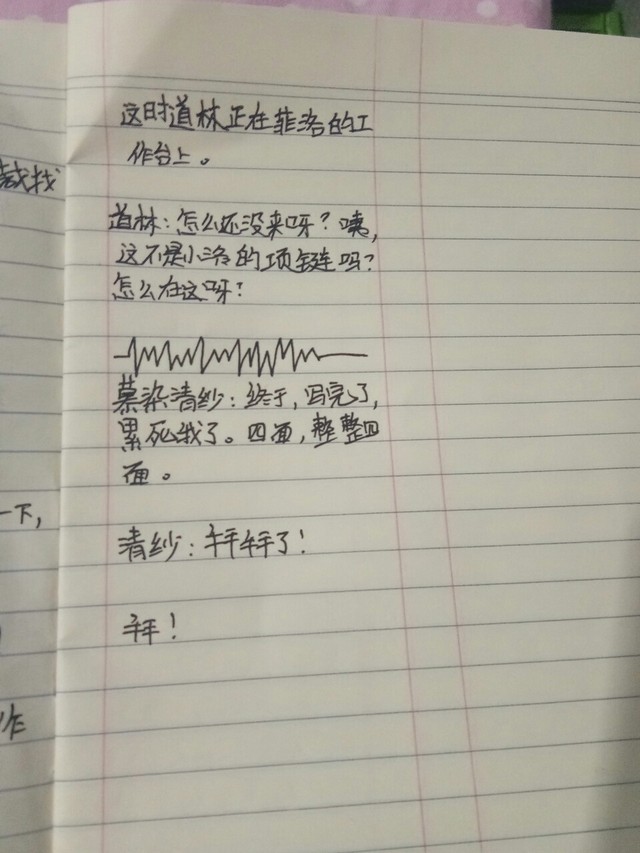 裁找
一下,
作
这时道林正在菲洛的工
作台上。
道林:怎么还没来呀?咦,
这不是小洛的项链吗?
怎么在这呀?
慕染清纱:终于,写完了,
累死我了。四面,整整四
面。
清纱:拜拜了!
拜!